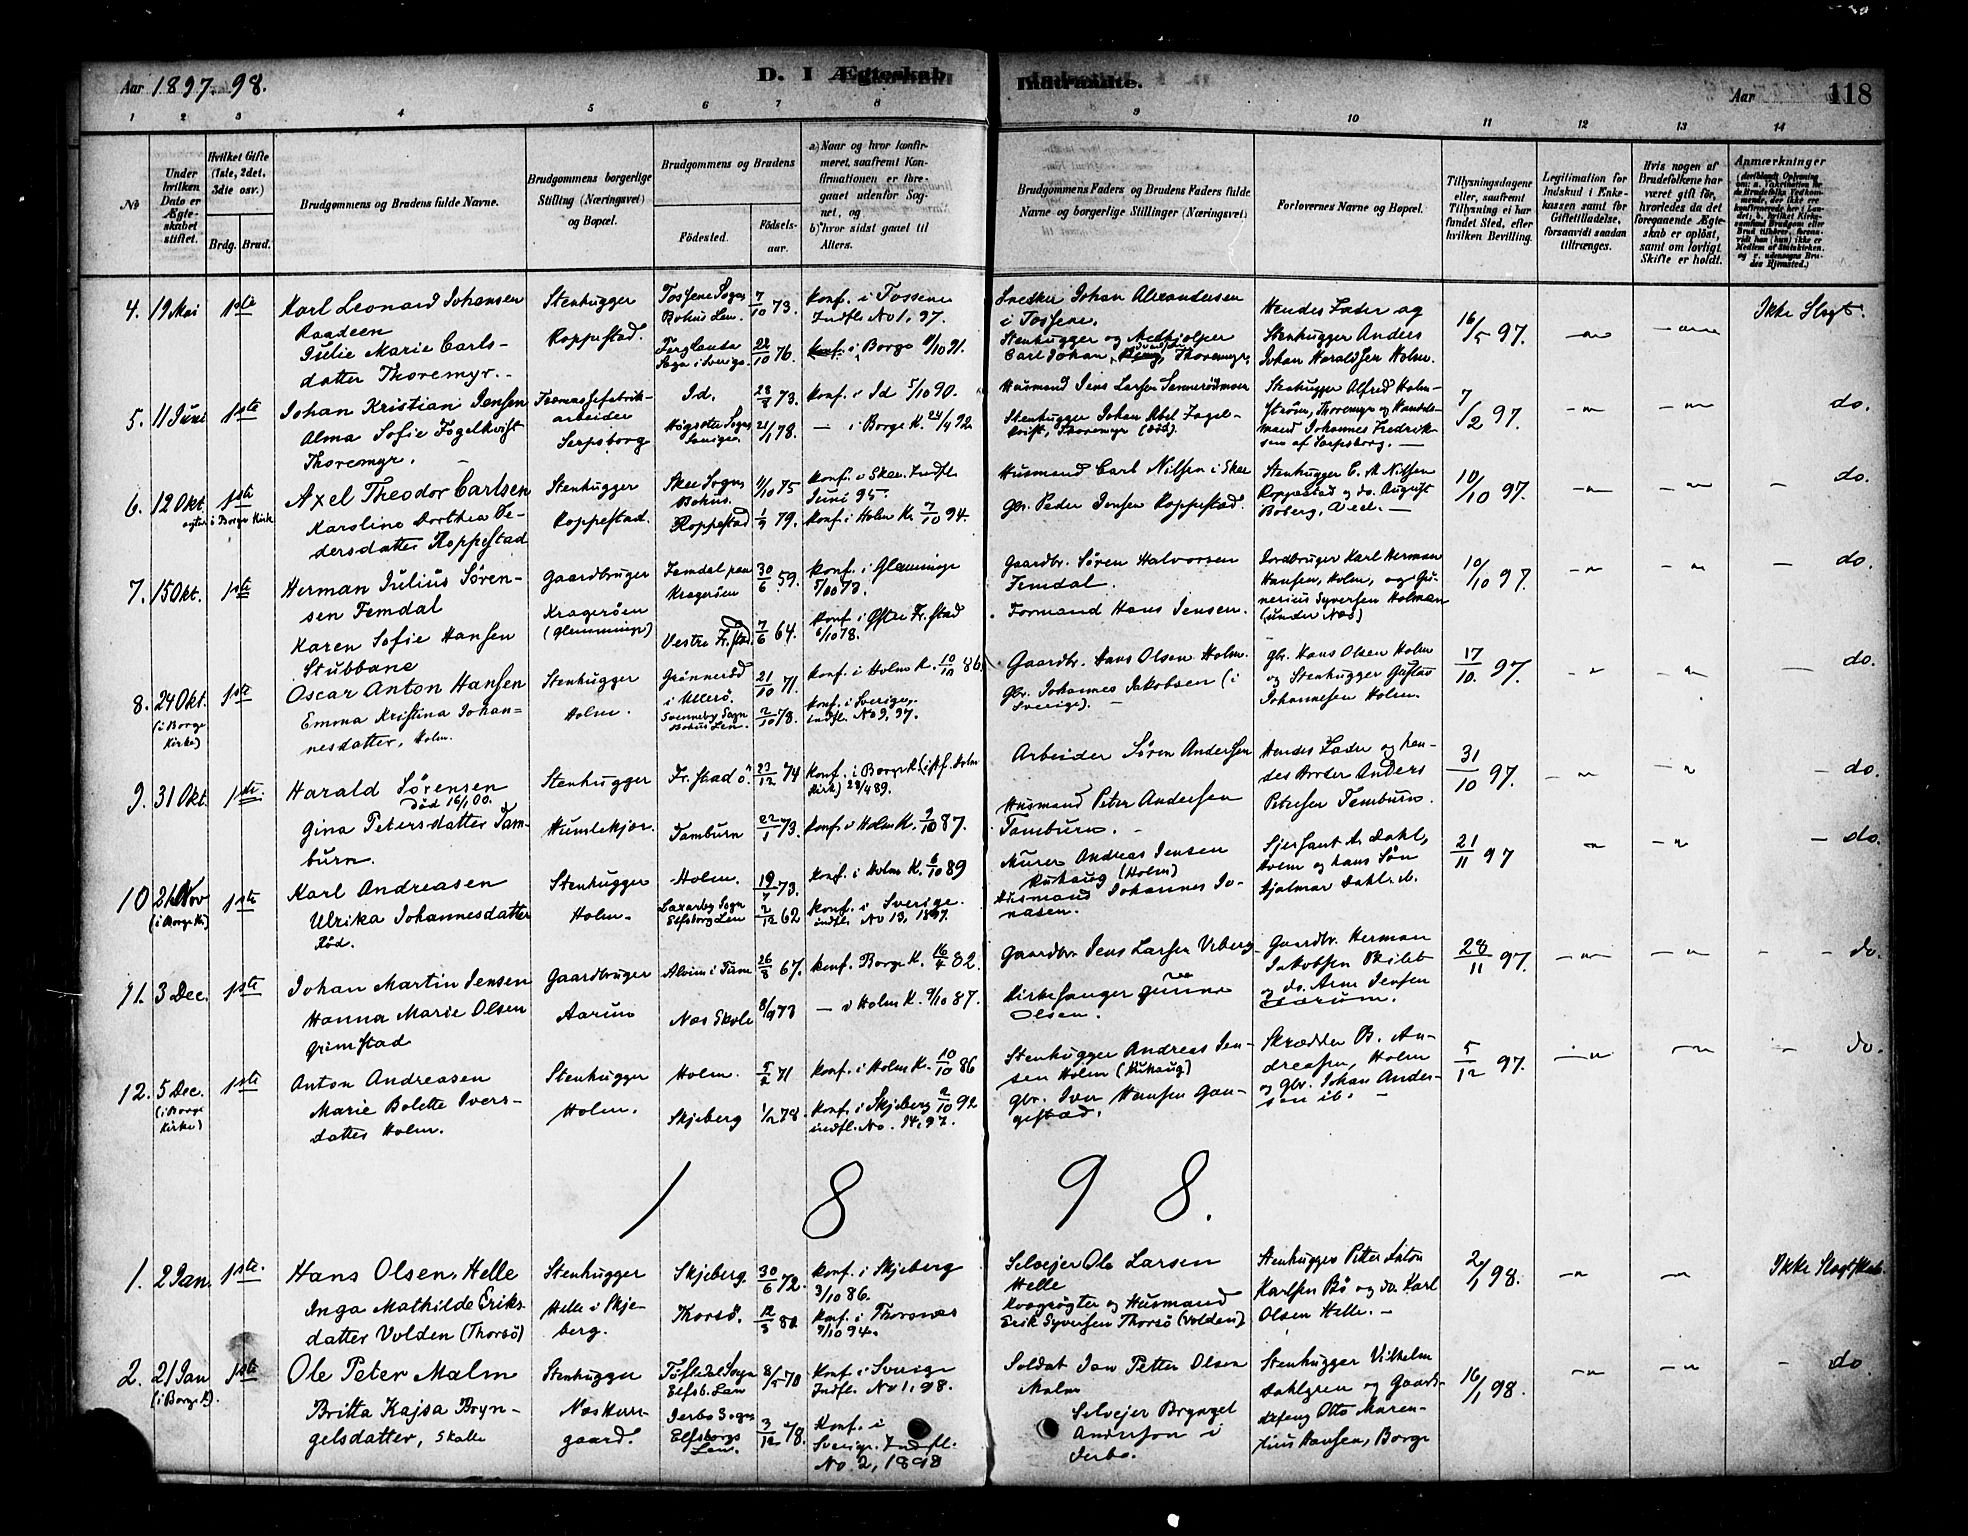 Aar 1897-98. D. I Ægteskab Indtraadte. Aar 118
1 2 3 4 5 6 7 8 9 10 11 12 13 14
No
Under hvilken Dato er Ægteskabet stiftet.
Hvilket Gifte (1ste, 2det, 3die osv.)
Brdg. Brud.
Brudgommens og Brudens fulde Navne.
Brudgommens borgerlige Stilling (Næringsvei) og Bopæl.
Brudgommens og Brudens
Fødested. Fødselsaar.
a) Naar og hvor konfirmeret, saafremt Konfirmationen er foregaaet udenfor Sognet, og
b) hvor sidst gaaet til Alters.
Brudgommens Faders og Brudens Faders fulde Navne og borgerlige Stillinger (Næringsvei)
Forlovernes Navne og Bopæl.
Tillysningsdagene eller, saafremt Tillysning ei har fundet Sted, efter hvilken Bevilling.
Legitimation for Indskud i Enkekassen samt for Giftetilladelse, forsaavidt saadan tiltrænges.
Hvis nogen af Brudefolkene har været gift før, hvorledes da det foregaaende Ægteskab er opløst, samt om lovligt Skifte er holdt.
Anmærkninger
4. 19 Mai 1ste
Karl Leonard Johansen
Raadeen
Julie Marie Carls-
datter Thoremyr.
Stenhugger
Roppestad.
Tossene Sogn
Bohus Len.
7/10 73.
22/10 76.
Konf. i Tossene
Indfl. No 1, 97.
i Borge 4/10 91.
Snedker Johan Alexandersen
i Tossene.
Stenhugger og
Carl Johan Thoremyr
Hendes Fader og
Stenhugger Anders
Johan Haraldsen Holm.
16/5 97.
Ikke Slægt.
5. 11 Juni 1ste
Johan Kristian Jensen
Alma Sofie Fogelkvist
Thoremyr.
arbeider
Sarpsborg
Id.
28/3 73.
21/1 78.
Konf. i Id 5/10 90.
— i Borge K. 24/4 92
Husmand Jens Larsen
Stenhugger Johan Abel Fogel-
kvist, Thoremyr (død).
Stenhugger Alfred Holm-
strøm, Thoremyr og
Johannes Fredrik-
sen af Sarpsborg. —
7/2 97.
do.
6. 12 Okt. 1ste
i Borge Kirke
Axel Theodor Carlsen
Karoline Dorthea Pe-
dersdatter Roppestad
Stenhugger
Roppestad.
Skee Sogn
Bohus.
Roppestad
4/10 75
1/9 79.
Konf. i Skee. Indfl.
Juni 95
Konf. i Holm K. 7/10 94.
Husmand Carl Nilsen i Skee
Gbr. Peder Jensen Roppestad.
Stenhugger C. M. Nilsen
Roppestad og do. August
Boberg,
10/10 97.
do.
7. 15 Okt. 1ste
Herman Julius Søren-
sen Femdal
Karen Sofie Hansen
Stubbane
Gaardbruger
Kragerøen
(Glemminge)
Femdal paa
Kragerøen
Vestre Fr.stad
30/6 59.
7/6 64.
Konf. i Glemminge
5/10 73.
Konf. i Østre Fr.stad
6/10 78.
Gaardbr. Søren Halvorsen
Femdal.
Formand Hans Jensen.
Jordbruger Karl Herman
Hansen, Holm, og Gu-
nerius Syversen Holmen
(under Næs)
10/10 97.
do.
8. 24 Okt. 1ste
(i Borge
Kirke)
Oscar Anton Hansen
Emma Kristina Johan-
nesdatter, Holm.
Stenhugger
Holm.
Grønnerød
i Ullerø.
Svenneby Sogn
Bohus Len.
21/10 71.
2/10 78.
Konf. i Holm K. 10/10 86.
Konf. i Sverige,
indfl. No 9, 97.
Gaardbr. Hans Olsen Holm.
Gbr. Johannes Jakobsen (i
Sverige).
Gbr. Hans Olsen Holm
og Stenhugger Gustav
Johannesen Holm.
17/10. 97.
do.
9. 31 Okt. 1ste
Harald Sørensen
Død 16/1 00.
Gina Petersdatter Tam-
burn.
Stenhugger
Humlekjær.
Fr.stad
Tamburn
23/12 74
22/1 73.
Konf. i Borge K.
Kirk) 28/4 89.
Konf. i Holm K. 2/10 87.
Arbeider Søren Andersen
Husmand Peter Andersen
Tamburn.
Hendes Fader og hen-
des Broder Anders
Petersen Tamburn.
31/10 97.
do.
10 21 Nov 1ste
(i Borge K.)
Karl Andreasen
Ulrika Johannesdatter
Rød.
Stenhugger
Holm.
Holm.
Laxarby Sogn
Elfsborg Len
19/7 73.
2/12 62
Konf. i Holm K. 6/10 89
Konf. i Sverige.
indfl. No 13, 1897.
Murer Andreas Jensen
Kuhaug (Holm)
Husmand Johannes Jo-
nasen.
Sjersant A. Dahl,
Holm og hans Søn
Hjalmar Dahl ib.
21/11 97
do.
11. 3 Dec. 1ste
Johan Martin Jensen
Hanna Marie Olsen
Grimstad
Gaardbruger
Aarum
Alvim i Tune
Næs Skole
26/8 67.
8/9 73
Konf. Borge K. 16/4 82.
— i Holm K. 9/10 87.
Gaardbr. Jens Larsen Viberg
Kirkesanger
Olsen.
Gaardbr. Herman
Jakobsen
og do. Arne Jensen
Aarum.
28/11 97.
do.
12. 5 Dec. 1ste
(i Borge
Kirke)
Anton Andreasen
Marie Bolette Ivers-
datter Holm.
Stenhugger
Holm.
Holm.
Skjeberg
5/2 71
1/2 78
Konf. i Holm K. 10/10 86
Konf. i Skjeberg 2/10 92
indfl. No. 14, 97.
Stenhugger Andreas Jen-
sen Holm (Kuhaug)
Gbr. Iver Hansen Gan-
gestad.
Skrædder B. An-
dreasen, Holm
og gbr. Johan Ander-
sen ib. —
5/12 97.
do.
1 8 9 8.
1. 2 Jan 1ste
Hans Olsen, Helle
Inga Mathilde Eriks-
datter Volden (Thorsø)
Stenhugger
Helle i Skje-
berg.
Skjeberg.
Thorsø.
30/6 72.
12/3 80
Konf. i Skjeberg
3/10 86.
Konf. i Thorsnæs
7/10 94.
Selveier Ole Larsen
Helle
Kvægrøgter og Husmand
Erik Syversen Thorsø (Volden)
Stenhugger Peter Anton
Karlsen Bø og do. Karl
Olsen Helle. —
2/1 98.
Ikke Slægtskab
2. 21 Jan 1ste
(i Borge K).
Ole Peter Malm
Britta Kajsa Bryn-
gelsdatter, Skalle
Stenhugger
gaard.
Tøftedal Sogn
Elfsb. Len
Jerbo Sogn
Elfsborgs
Len.
8/5 70
3/12 78.
Konf. i Sverige
Indfl. No 1, 98.
Konf. i
Sverige. Indfl.
No 2, 1898
Soldat Jan Petter Olsen
Malm
Selveier Bryngel
Anderson i
Jerbo.
Stenhugger Vilhelm
Dahlgren og Gaard-
Otto Maren-
tius Hansen, Borge
16/1 98.
do